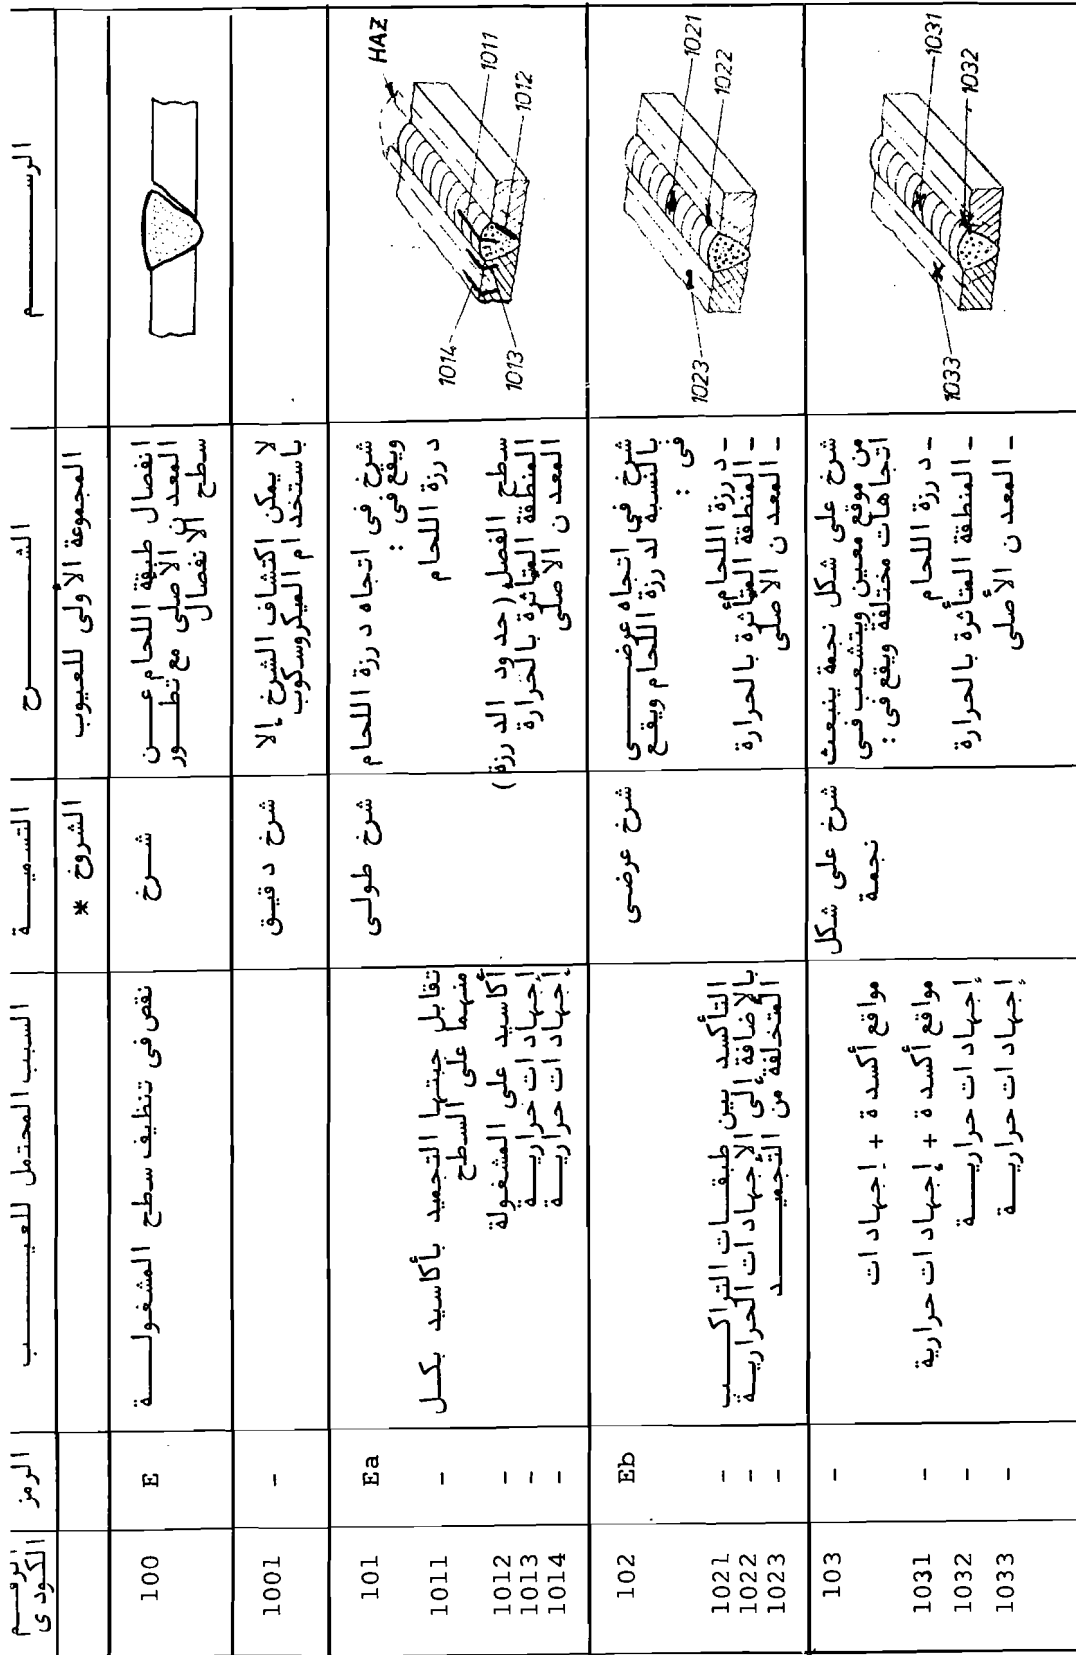 الرقم الكودى	الرمز	السبب المحتمل للعيب	التسمية	الشرح	الرسم
الشروخ *	المجموعة الأولى للعيوب
100	E	نقص فى تنظيف سطح المشغولة	شرخ	انفصال طبقة اللحام عن
المعدن الأصلى مع تطور
سطح الانفصال
1001	-	شرخ دقيق	لا يمكن اكتشاف الشرخ إلا
باستخدام الميكروسكوب
101	Ea	شرخ طولى	شرخ فى اتجاه درزة اللحام
ويقع فى :
1011	-	تقابل جبتها التجميد بأكاسيد بكل
منهما على السطح	درزة اللحام
1012	-	أكاسيد على المشغولة	سطح الفصل (حدود الدرزة)
1013	-	إجهادات حرارية	المنطقة المتأثرة بالحرارة
1014	-	إجهادات حرارية	المعدن الأصلى
HAZ
1011
1012
1014
1013
102	Eb	شرخ عرضى	شرخ فى اتجاه عرضى
بالنسبة لدرزة اللحام ويقع
فى :
1021	-	التأكسد بين طبقات التراكب	- درزة اللحام
1022	-	بالاضافة إلى الاجهادات الحرارية	- المنطقة المتأثرة بالحرارة
1023	-	المتخلفة من التجميد	- المعدن الأصلى
1021
1022
1023
103	-	مواقع أكسدة + إجهادات	شرخ على شكل
نجمة	شرخ على شكل نجمة ينبعث
من موقع معين ويتشعب فى
اتجاهات مختلفة ويقع فى :
1031	-	مواقع أكسدة + إجهادات حرارية	- درزة اللحام
1032	-	إجهادات حرارية	- المنطقة المتأثرة بالحرارة
1033	-	إجهادات حرارية	- المعدن الأصلى
1031
1032
1033